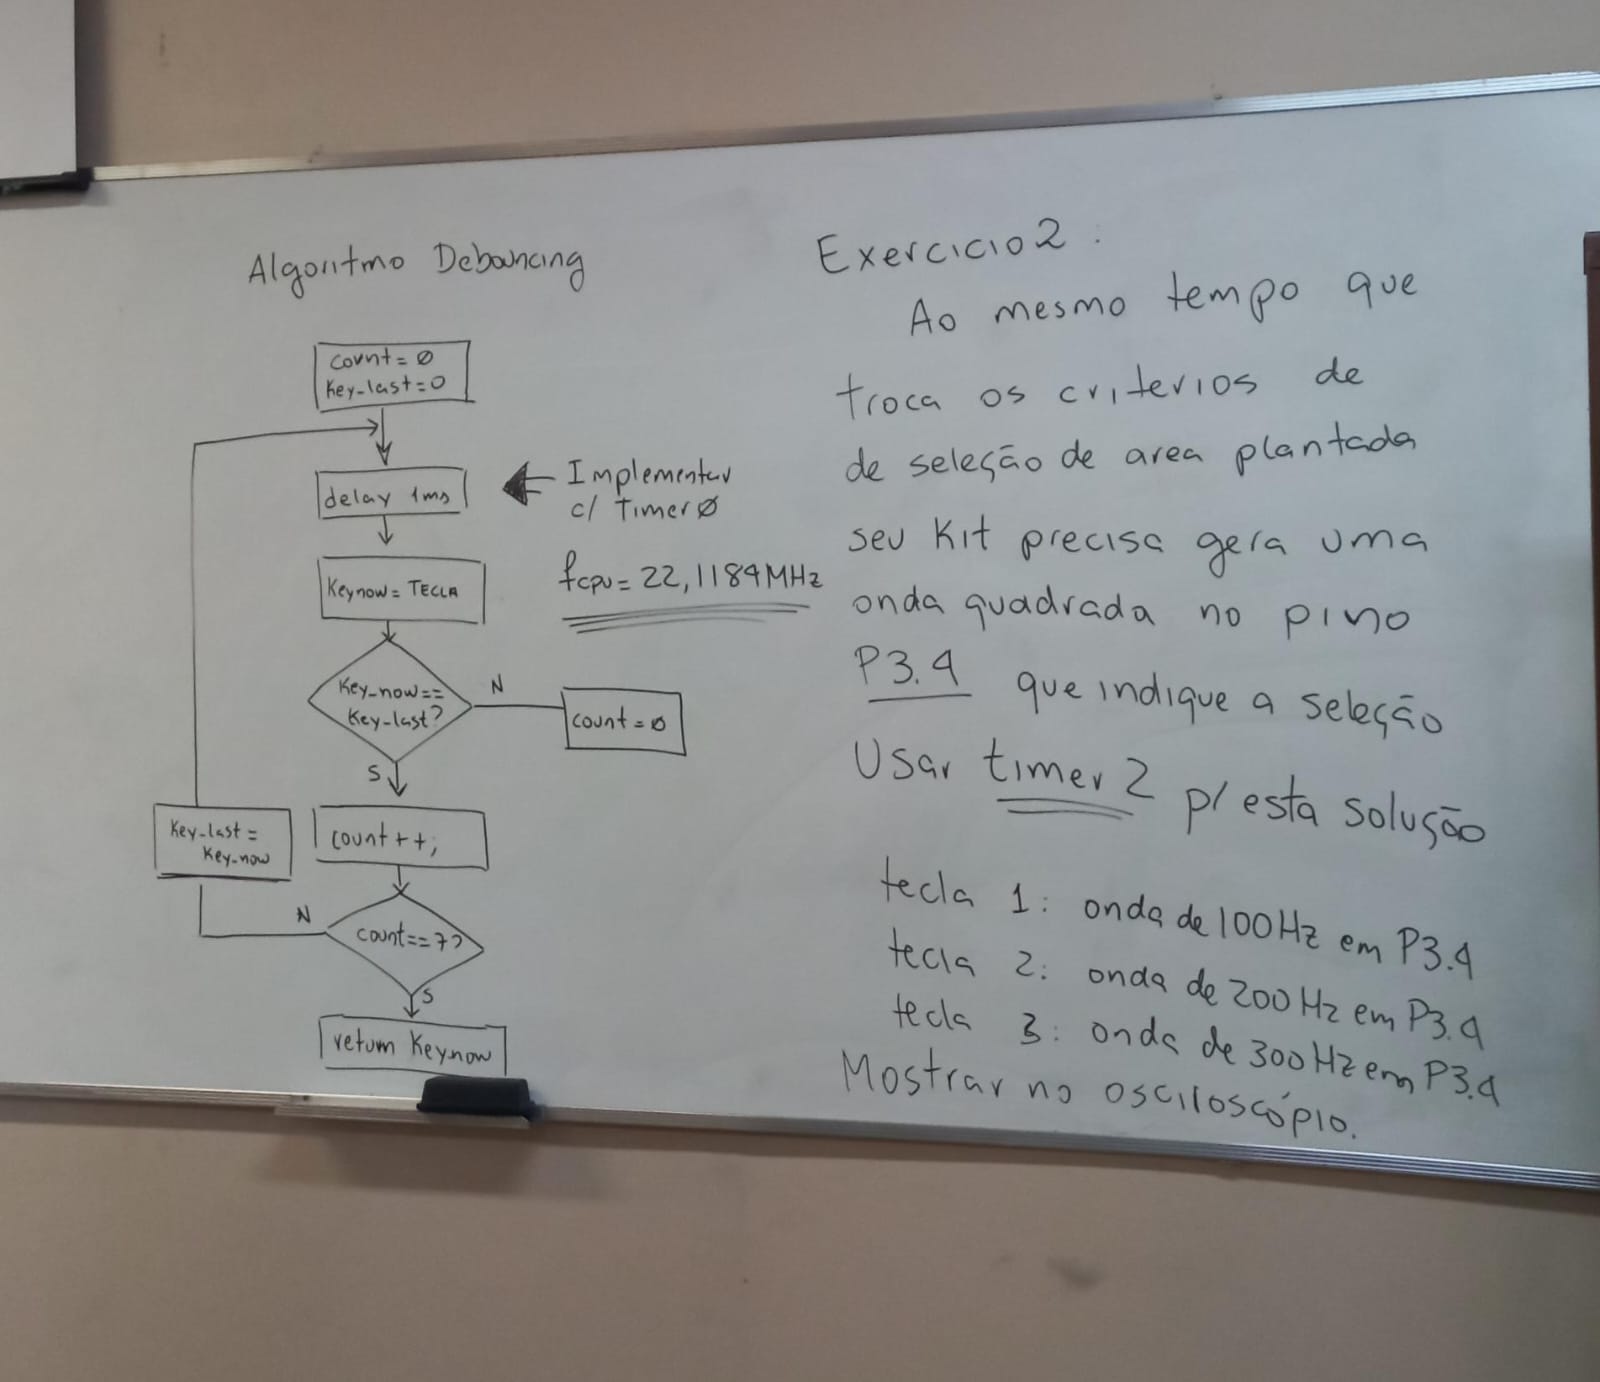 Algoritmo Debouncing
count = Ø
Key-last=0
delay 1ms
Implementar
c/ Timer Ø
Keynow= TECLA
fcpu = 22,1184MHz
Key-now==
Key-last?
N
count = Ø
S
Key-last =
Key-now
count++;
N
count==7?
S
return Keynow
Exercicio 2:
Ao mesmo tempo que
troca os criterios de
de seleção de area plantada
seu Kit precisa gera uma
onda quadrada no pino
P3.4 que indique a seleção
Usar timer 2 p/ esta solução
tecla 1: onda de 100Hz em P3.4
tecla 2: onda de 200Hz em P3.4
tecla 3: onda de 300Hz em P3.4
Mostrar no osciloscópio.